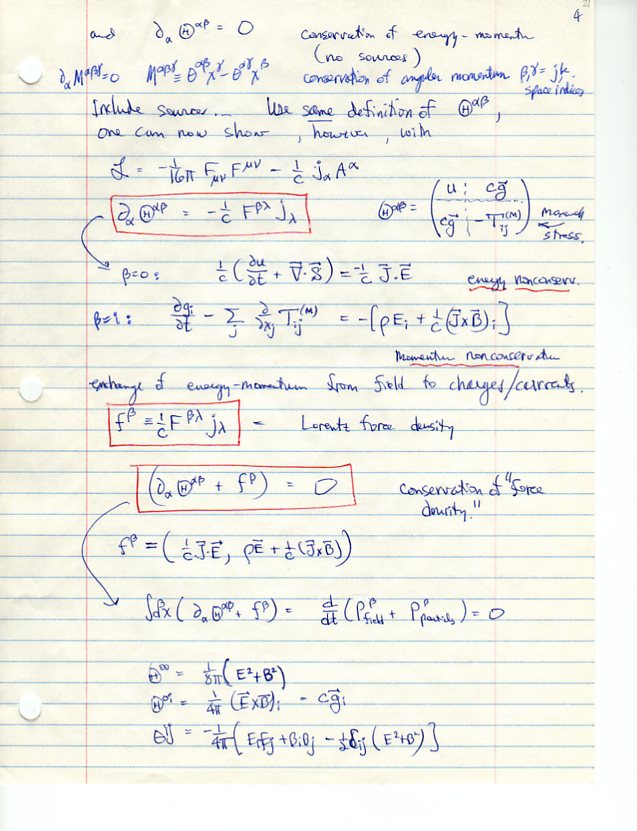 21
4
and ∂_α Θ^{αβ} = 0 conservation of energy-momentum
(no sources)
∂_α M^{αβγ} = 0 M^{αβγ} ≡ Θ^{αβ}x^γ - Θ^{αγ}x^β conservation of angular momentum β,γ = j,k
space indices
Include sources... Use same definition of Θ^{αβ},
one can now show, however, with
ℒ = -1/16π F_{μν} F^{μν} - 1/c j_α A^α
∂_α Θ^{αβ} = -1/c F^{βλ} j_λ Θ^{αβ} = ( u ¦ cg⃗ ; cg⃗ ¦ -T_{ij}^{(M)} ) Maxwell
stress.
β=0: 1/c (∂u/∂t + ∇⃗·S⃗) = -1/c J⃗·E⃗ energy nonconserv.
β=i: ∂g_i/∂t - Σ_j ∂/∂x_j T_{ij}^{(M)} = -[ρE_i + 1/c (J⃗×B⃗)_i]
momentum nonconservation
exchange of energy-momentum from field to charges/currents.
f^β ≡ 1/c F^{βλ} j_λ = Lorentz force density
(∂_α Θ^{αβ} + f^β) = 0 conservation of "force
density."
f^β = (1/c J⃗·E⃗, ρE⃗ + 1/c (J⃗×B⃗))
∫d³x (∂_α Θ^{αβ} + f^β) = d/dt (P^β_{field} + P^β_{particles}) = 0
Θ^{00} = 1/8π (E²+B²)
Θ^{0i} = 1/4π (E⃗×B⃗)_i = cg⃗_i
Θ^{ij} = -1/4π [E_iE_j + B_iB_j - ½δ_{ij} (E²+B²)]